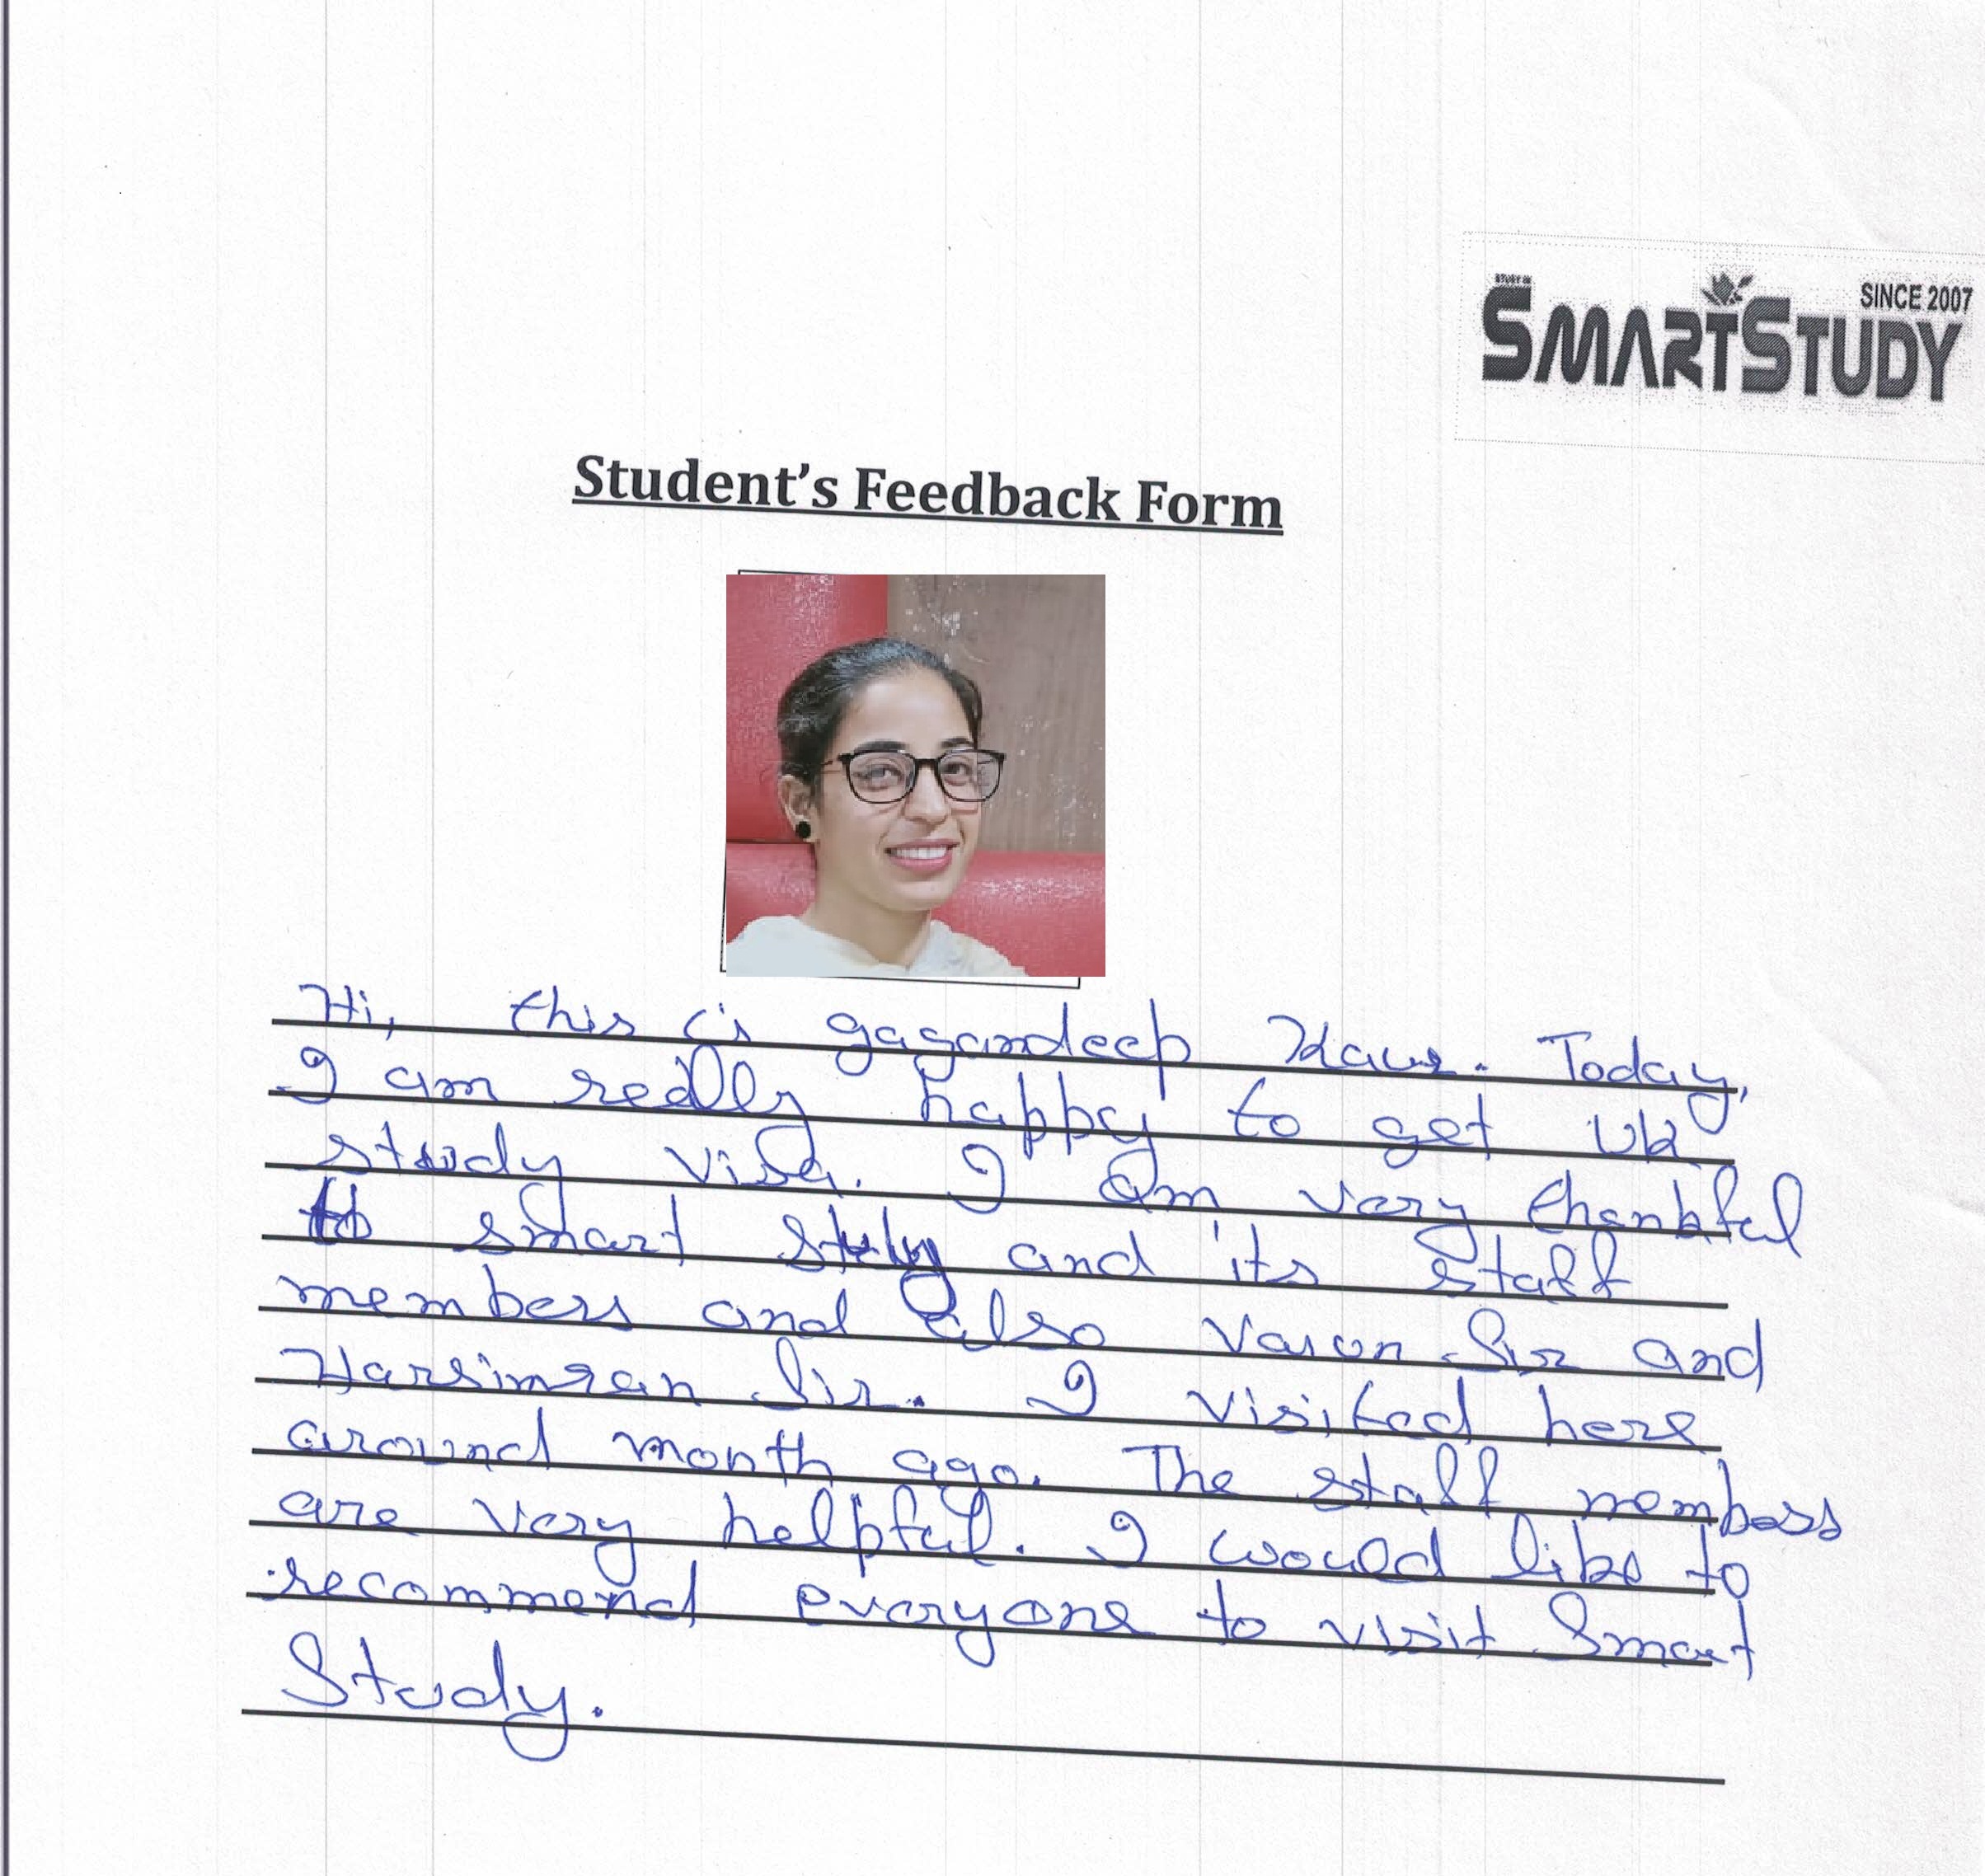 STUDY IN
SMARTSTUDY
SINCE 2007
Student's Feedback Form
Hi, this is gagandeep Kaur. Today,
I am really happy to get UK
study visa. I am very thankful
to smart study and its staff
members and also Varun Sir and
Harsimran Sir. I visited here
around month ago. The staff members
are very helpful. I would like to
recommend everyone to visit Smart
Study.